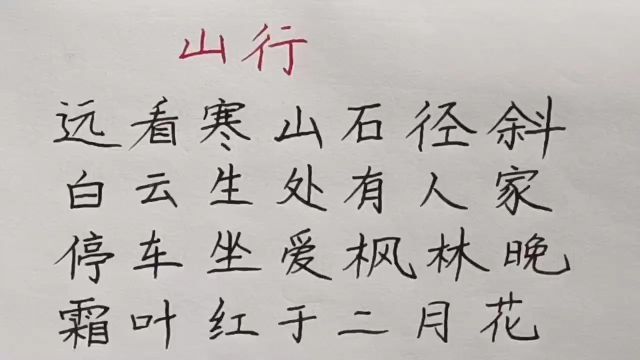 山行
远看寒山石径斜
白云生处有人家
停车坐爱枫林晚
霜叶红于二月花